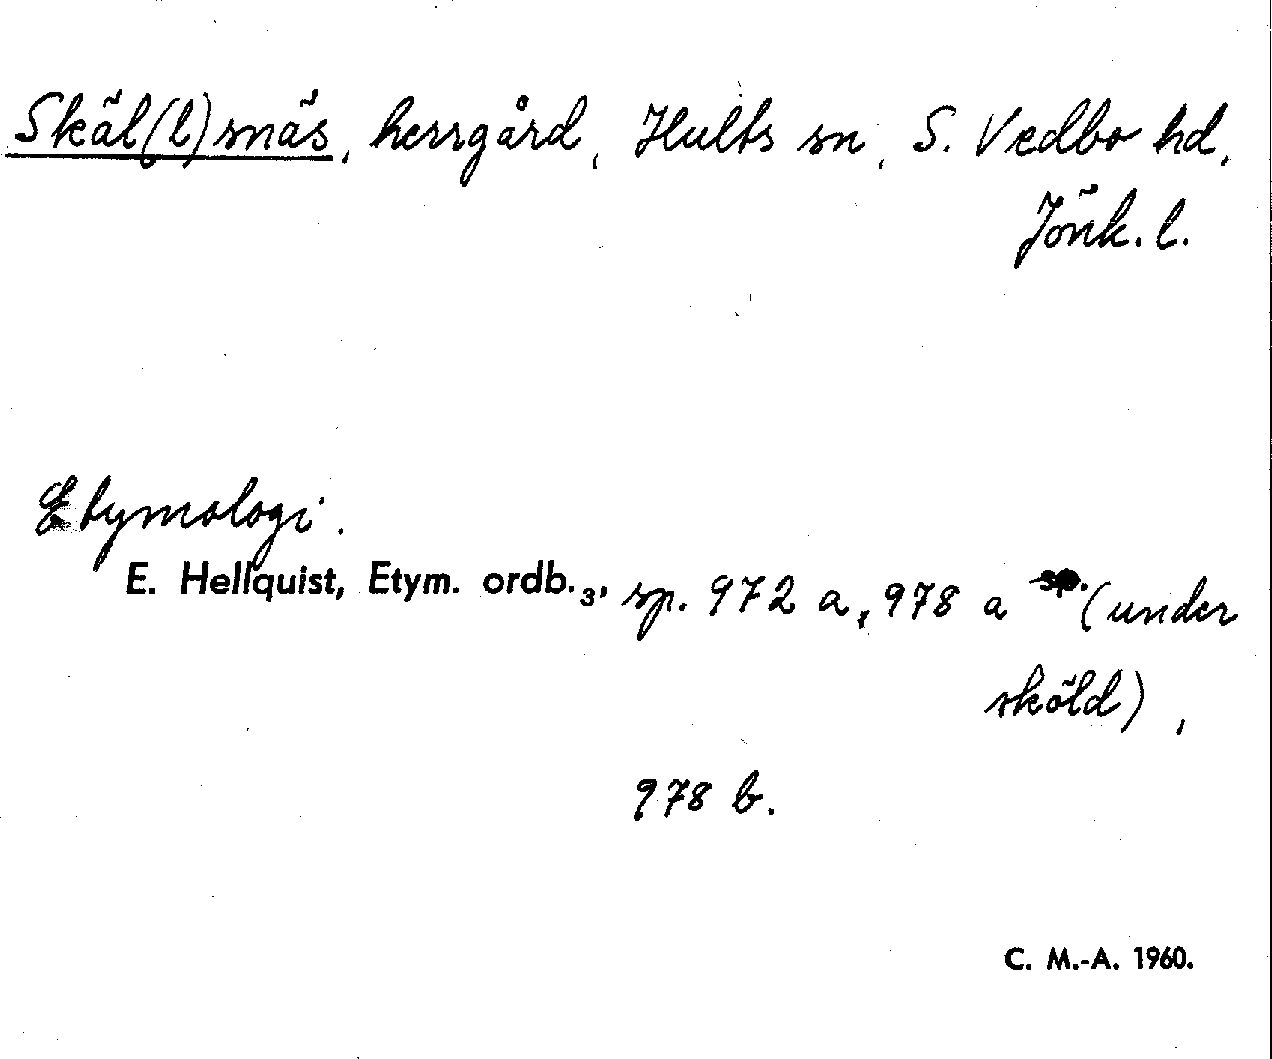 Skäl(l)snäs, herrgård, Hults sn, S. Vedbo hd,
Jönk. l.
Etymologi.
E. Hellquist, Etym. ordb.3, sp. 972 a, 978 a (under
sköld),
978 b.
C. M.-A. 1960.